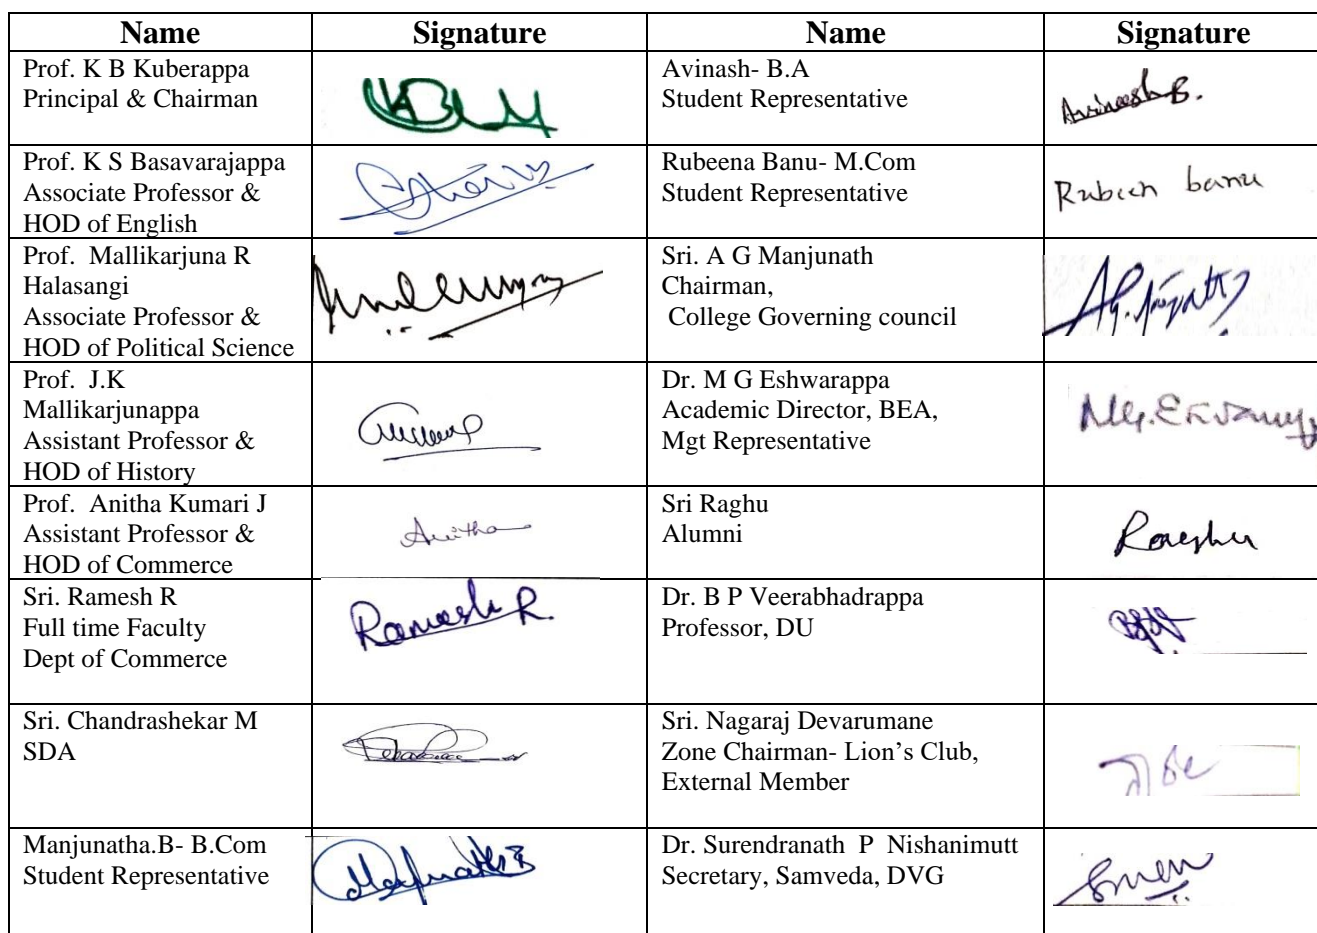 Name Signature Name Signature
Prof. K B Kuberappa
Principal & Chairman
Avinash- B.A
Student Representative
Avinash B.
Prof. K S Basavarajappa
Associate Professor &
HOD of English
Rubeena Banu- M.Com
Student Representative
Rubeen banu
Prof. Mallikarjuna R
Halasangi
Associate Professor &
HOD of Political Science
Sri. A G Manjunath
Chairman,
College Governing council
Prof. J.K
Mallikarjunappa
Assistant Professor &
HOD of History
Dr. M G Eshwarappa
Academic Director, BEA,
Mgt Representative
Prof. Anitha Kumari J
Assistant Professor &
HOD of Commerce
Anitha
Sri Raghu
Alumni
Raghu
Sri. Ramesh R
Full time Faculty
Dept of Commerce
Ramesh R.
Dr. B P Veerabhadrappa
Professor, DU
Sri. Chandrashekar M
SDA
Sri. Nagaraj Devarumane
Zone Chairman- Lion’s Club,
External Member
Manjunatha.B- B.Com
Student Representative
Manjunatha B
Dr. Surendranath P Nishanimutt
Secretary, Samveda, DVG